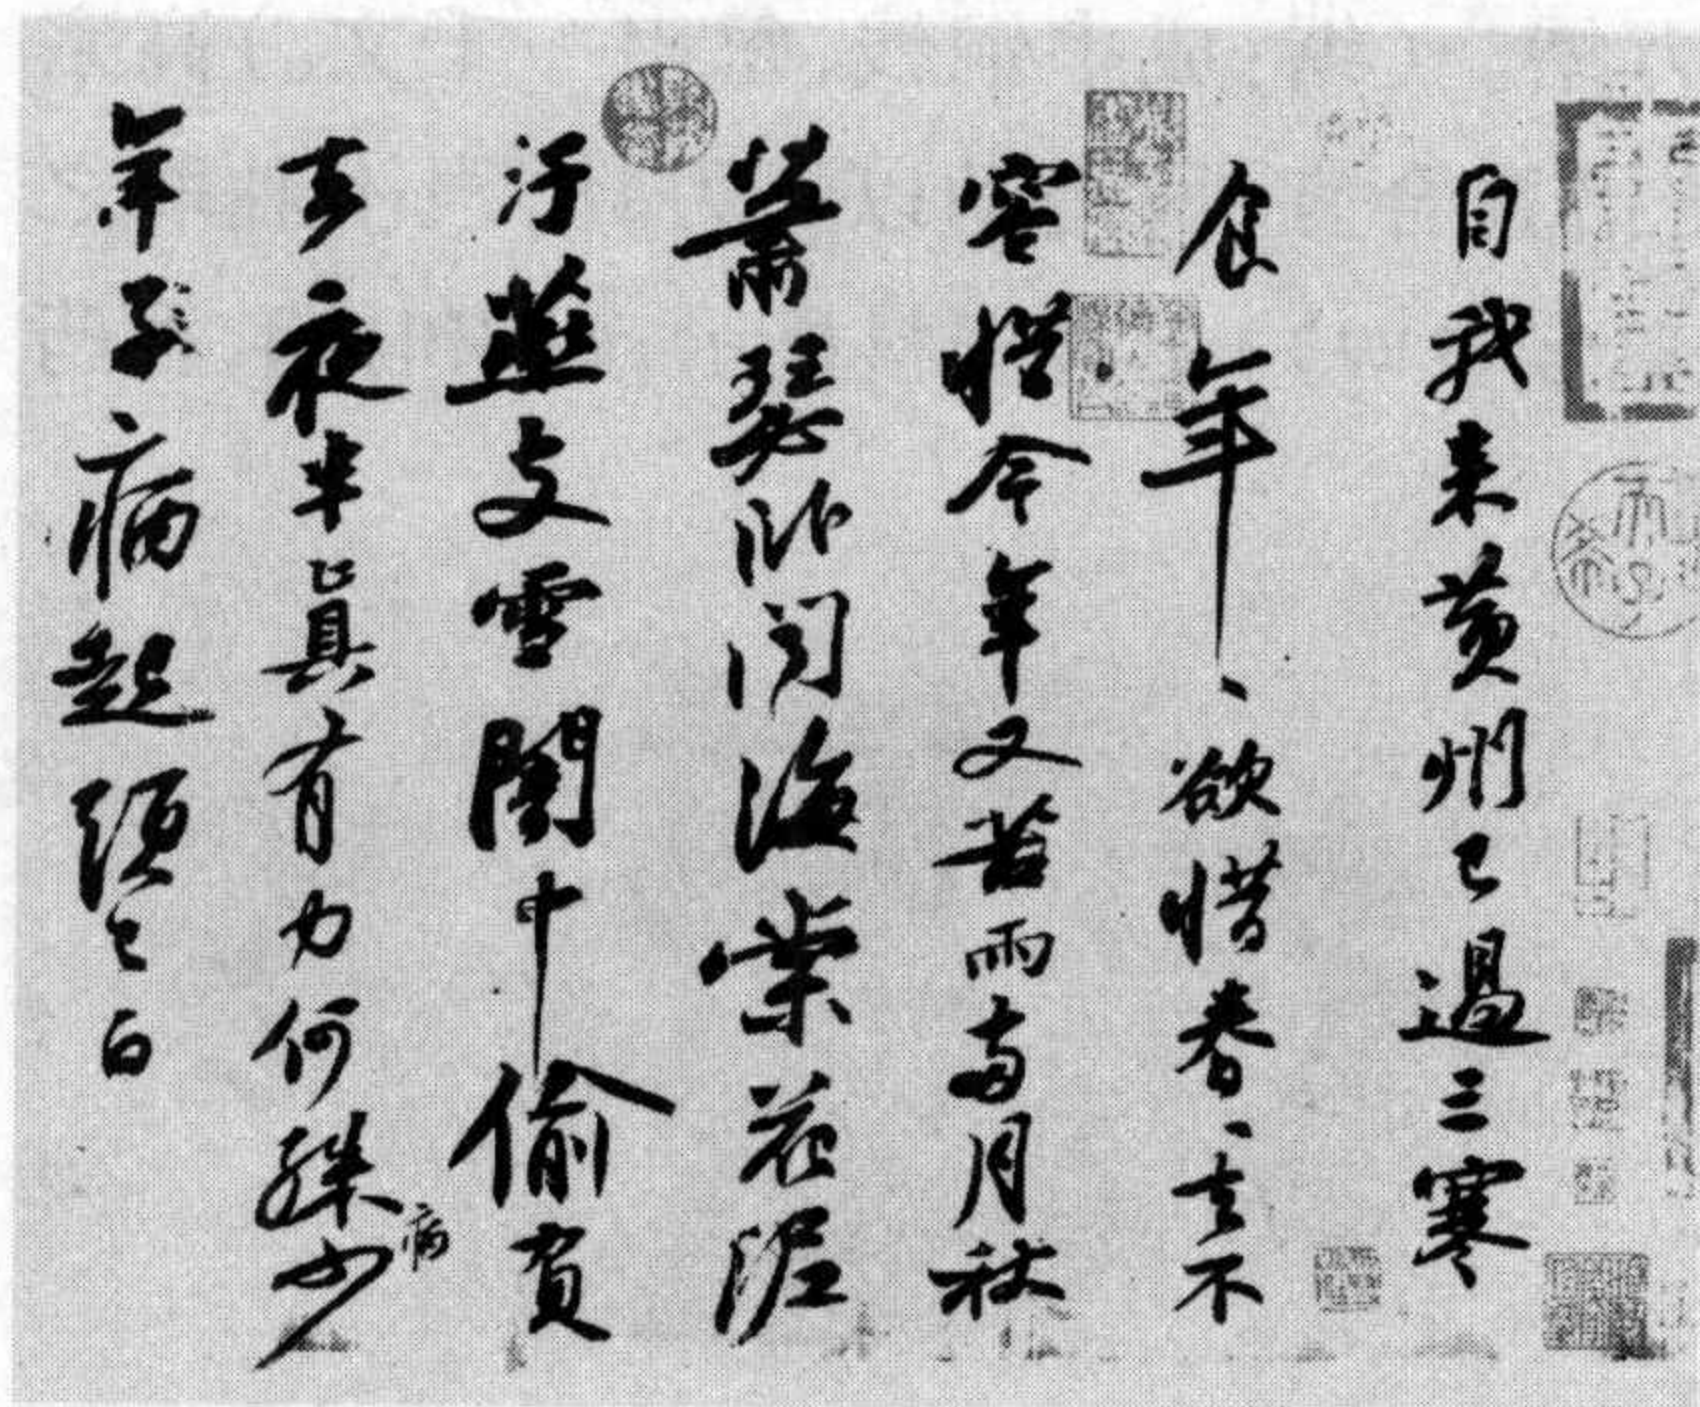 自我来黄州已過三寒
食年、欲惜春、去不
容惜今年又苦雨兩月秋
蕭瑟卧聞海棠花泥
汙燕支雪闇中偷負
去夜半真有力何殊少
病
年子病起頭已白